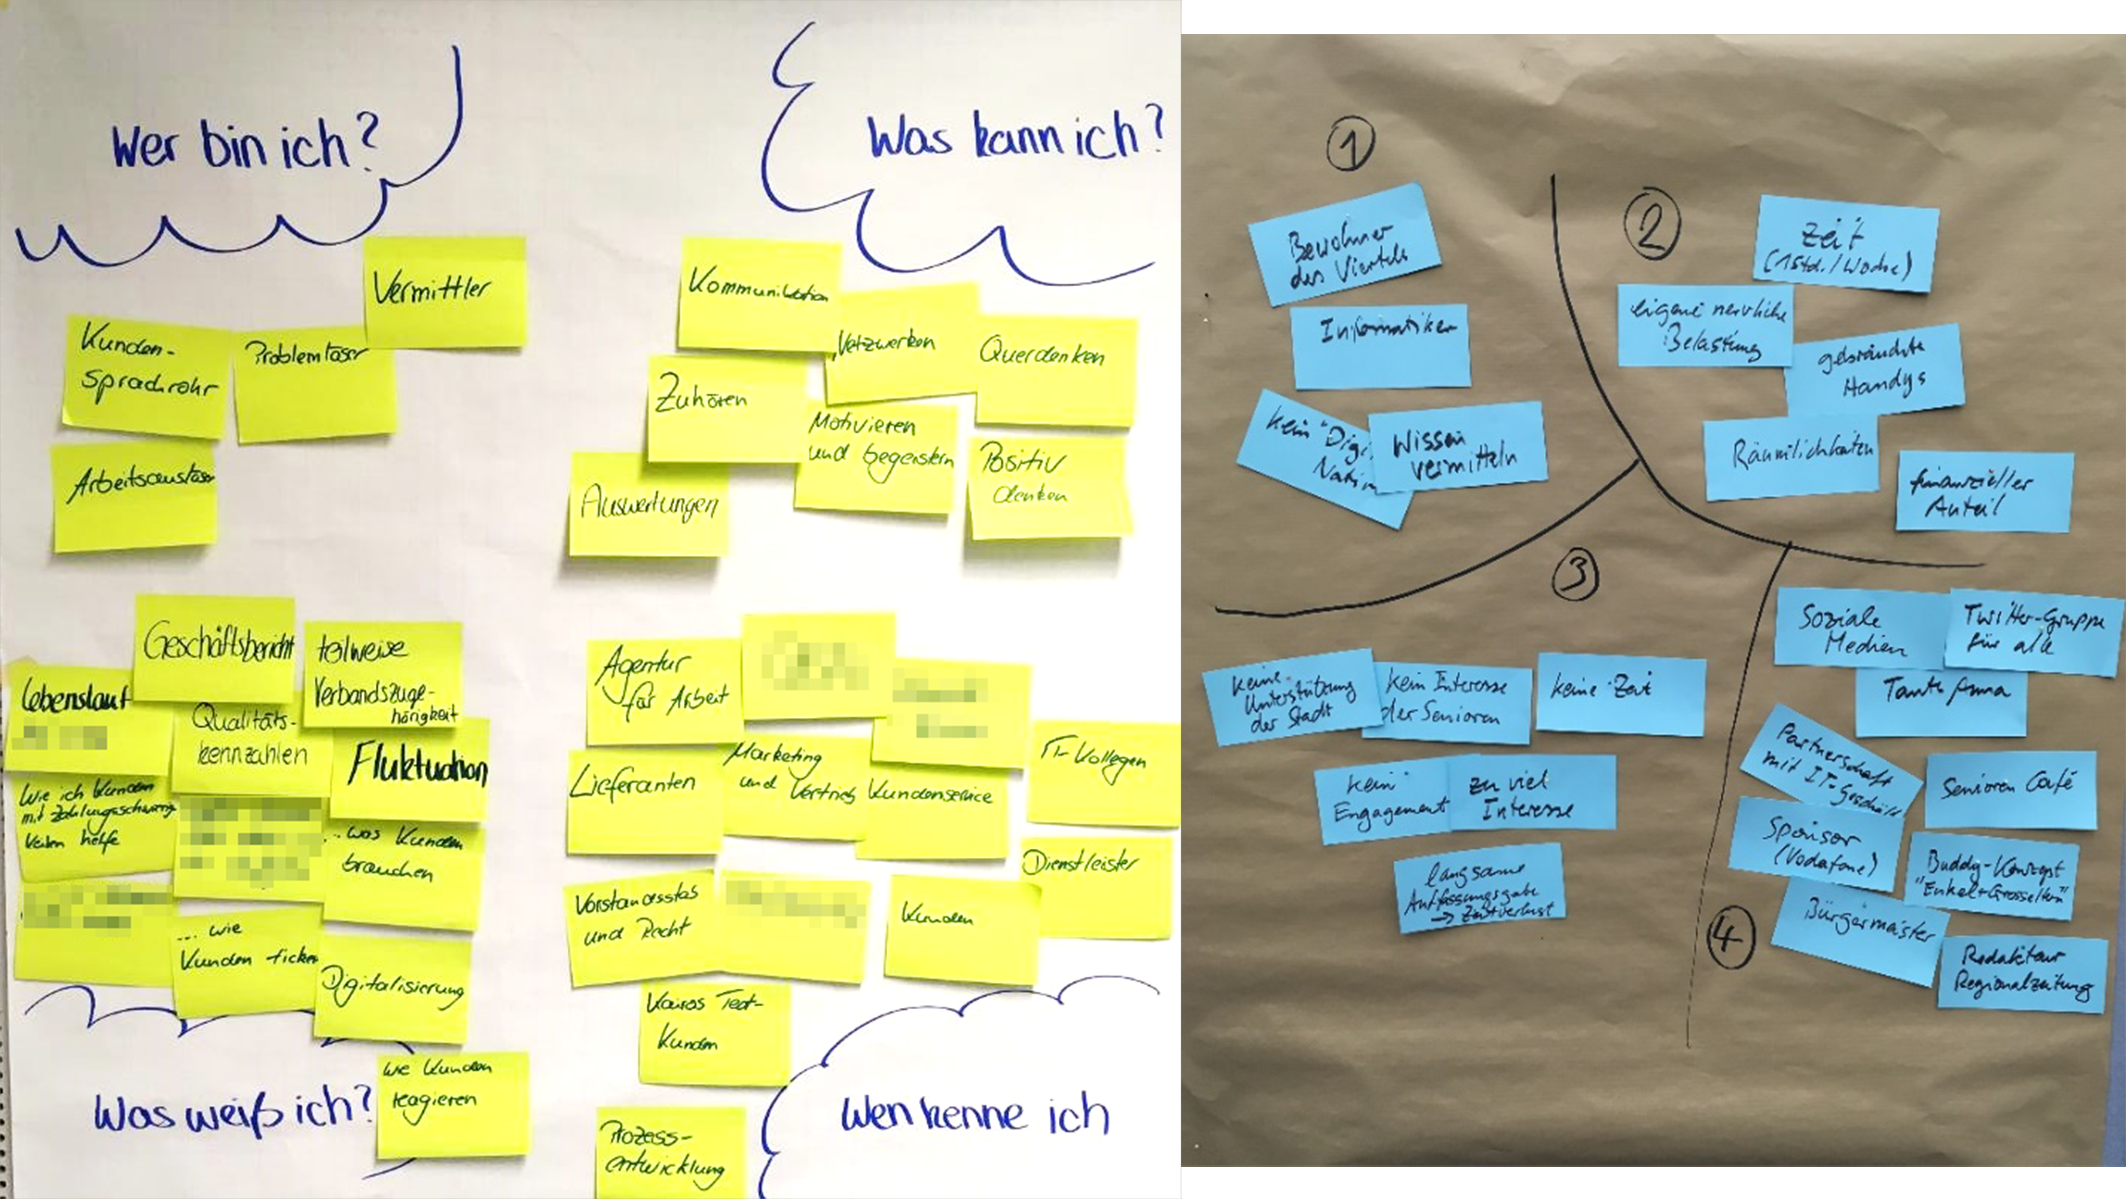 Wer bin ich?
Vermittler
Kunden-
sprachrohr
Problemlöser
Arbeitsauslöser
Was kann ich?
Kommunikation
Netzwerken
Querdenken
Zuhören
Motivieren
und begeistern
Positiv
denken
Auswertungen
Geschäftsbericht
teilweise
Verbandszuge-
hörigkeit
Lebenslauf
Qualitäts-
kennzahlen
Fluktuation
Wie ich Kunden
mit Zahlungsschwierig-
keiten helfe
...was Kunden
brauchen
... wie
Kunden ticken
Digitalisierung
wie Kunden
reagieren
Was weiß ich?
Agentur
für Arbeit
Lieferanten
Marketing
und Vertrieb
Kundenservice
IT-Kollegen
Dienstleister
Vorstandsstab
und Recht
Kunden
Kunden
Prozess-
entwicklung
Wen kenne ich
1
Bewohner
des Viertels
Informatiker
kein "Digi
Nativ
Wissen
vermitteln
2
Zeit
(1Std./Woche)
eigene nervliche
Belastung
gebrauchte
Handys
Räumlichkeiten
finanzieller
Anteil
3
keine
Unterstützung
der Stadt
kein Interesse
der Senioren
keine Zeit
kein
Engagement
zu viel
Interesse
langsame
Auffassungsgabe
→ Zeitverlust
4
Soziale
Medien
Twitter-Gruppe
für alle
Tante Emma
Partnerschaft
mit IT-Geschäft
Senioren Café
Sponsor
(Vodafone)
Buddy-Konzept
"Enkel+Grosseltern"
Bürgermeister
Redakteur
Regionalzeitung